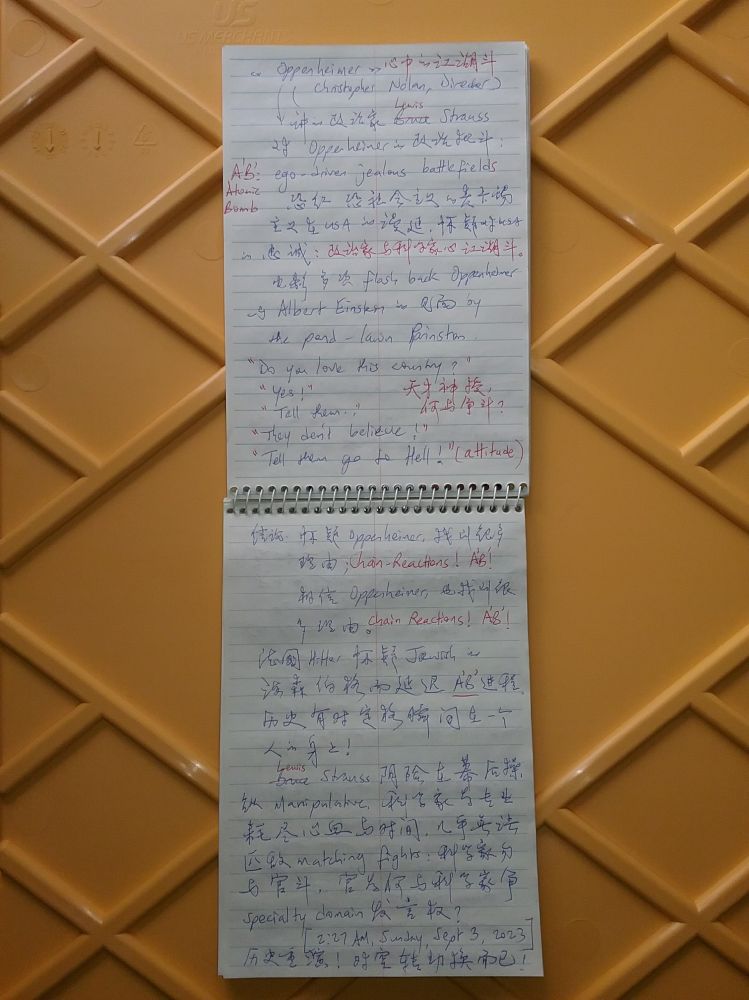 US
US MERCHANTS
Oppenheimer 心中的江湖斗
(Christopher Nolan, Director)
讲的政治家 Lewis Strauss
对 Oppenheimer 的政治批斗:
A'B': ego-driven jealous battlefields
Atomic
Bomb 恐红 恐社会主义的麦卡锡
主义在USA的漫延, 怀疑对USA
的忠诚: 政治家与科学家的江湖斗。
电影多次 flash back Oppenheimer
与 Albert Einstein 的见面 by
the pond-lawn Prinston.
"Do you love this country?"
"Yes!" 天才神授,
"Tell them.." 何与争斗?
"They don't believe!"
"Tell them go to Hell!" (attitude)
结论: 怀疑 Oppenheimer, 找出很多
理由; Chain-Reactions! A'B'!
相信 Oppenheimer, 也找出很
多理由。Chain Reactions! A'B'!
法国 Hitler 怀疑 Jewish 的
海森伯格而延迟 A'B' 进程.
历史有时定格瞬间在一个
人的身上!
Lewis Strauss 阴险在幕后操
纵 manipulative, 科学家与专业
耗尽心血与时间, 几乎无法
匹敌 matching fights; 科学家勿
与官斗, 官为何与科学家争
specialty domain 发言权?
[2:27 AM, Sunday, Sept 3, 2023]
历史重演! 时空转切换而已!